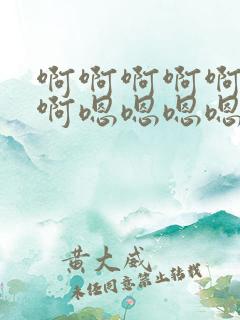 啊啊啊啊啊
啊嗯嗯嗯嗯
黄大威
未经同意禁止转载